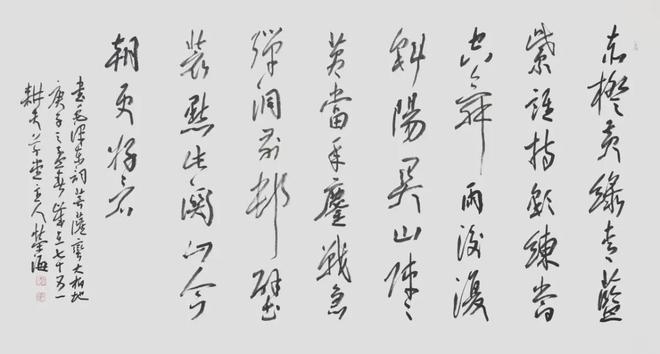 赤橙黄綠青藍
紫誰持彩練當
空舞雨後復
斜陽関山陣々
蒼當年鏖戰急
彈洞前邨壁
裝點此關山今
朝更好看
書毛澤東詞菩薩蠻大柏地
庚子之孟春歲在七十又一
耕夫草堂主人榮海